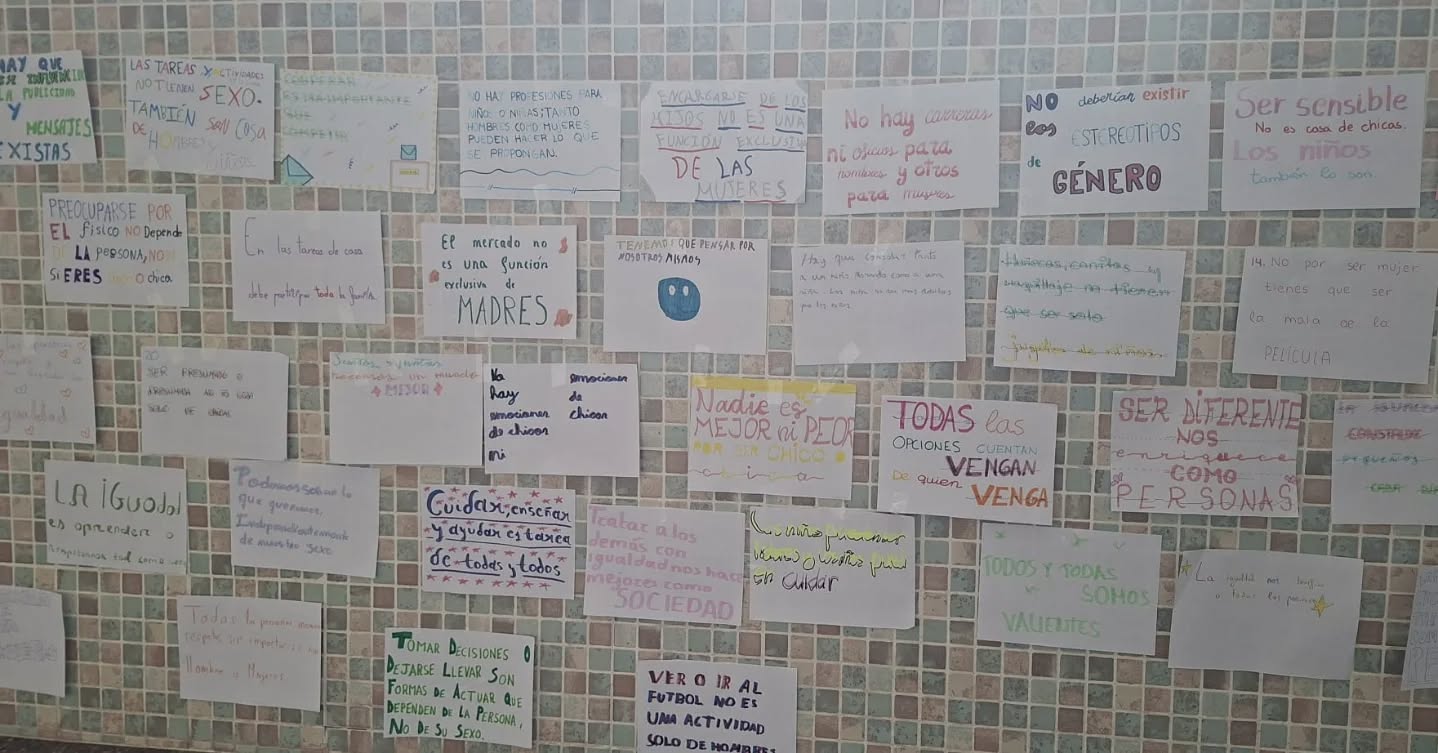 HAY QUE
LA PUBLICIDAD
Y
MENSAJES
EXISTAS
LAS TAREAS Y ACTIVIDADES
NO TIENEN SEXO.
TAMBIÉN SON COSA
DE HOMBRES Y
NIÑOS
COMPARTIR
ES TAN IMPORTANTE
QUE
COMPETIR
NO HAY PROFESIONES PARA
NIÑOS O NIÑAS; TANTO
HOMBRES COMO MUJERES
PUEDEN HACER LO QUE
SE PROPONGAN.
ENCARGARSE DE LOS
HIJOS NO ES UNA
FUNCIÓN EXCLUSIVA
DE LAS
MUJERES
No hay carreras
ni oficios para
hombres y otros
para mujeres
NO deberían existir
los ESTEREOTIPOS
de
GÉNERO
Ser sensible
No es cosa de chicas.
Los niños
también lo son.
PREOCUPARSE POR
EL físico NO Depende
DE LA PERSONA, NO
Si ERES chico O chica.
En las tareas de casa
debe participar toda la familia
El mercado no
es una función
exclusiva de
MADRES
TENEMOS QUE PENSAR POR
NOSOTROS MISMOS
Hay que consolar tanto
a un niño llorando como a una
niña. Las niñas no son más
Muñecas, carritos
maquillaje no tienen
que ser solo
juguetes de niñas
14. No por ser mujer
tienes que ser
la mala de la
PELÍCULA
igualdad
20
SER PRESUMIDO O
PRESUMIDA NO ES COSA
SOLO DE CHICAS
Juntos y juntas
hacemos un mundo
MEJOR
No
hay
emociones
de chicos
ni
emociones
de
chicas
Nadie es
MEJOR ni PEOR
POR SER CHICO O
chica
TODAS las
OPCIONES CUENTAN
VENGAN
De quien VENGA
SER DIFERENTE
NOS
enriquece
COMO
PERSONAS
CONSTRUYE
pequeños
CADA
LA iGUALDAD
es aprender a
respetarnos tal como
Podemos ser lo
que queramos.
Independientemente
de nuestro sexo
Cuidar, enseñar
y ayudar es tarea
de todas y todos
Tratar a los
demás con
igualdad nos hace
mejores como
SOCIEDAD
en cuidar
TODOS Y TODAS
SOMOS
VALIENTES
La igualdad nos
a todas las personas
Todas las personas merecen
respeto sin importar si son
Hombres o Mujeres
TOMAR DECISIONES O
DEJARSE LLEVAR SON
FORMAS DE ACTUAR QUE
DEPENDEN DE LA PERSONA,
NO DE SU SEXO.
VER O IR AL
FUTBOL NO ES
UNA ACTIVIDAD
SOLO DE HOMBRES